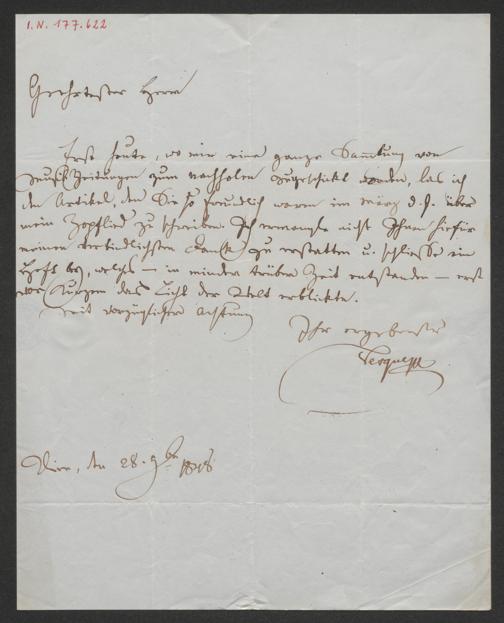 I. N. 177.622
Geehrtester Herr
Erst heute, wo mir eine ganze Sammlung von
Musik Zeitungen zum nachholen zugeschickt worden, las ich
den Artikel, den Sie so freundlich waren im März d. J. über
mein Zopflied zu schreiben. Ich ermangle nicht Ihnen hiefür
meinen verbindlichsten Dank zu erstatten u. schließe ein
Heft bei, welches — in minder trüber Zeit entstanden — erst
vor Kurzem das Licht der Welt erblickte.
Mit vorzüglicher Achtung
Ihr ergebenster
Vesque
Wien, den 28. 9br 1848